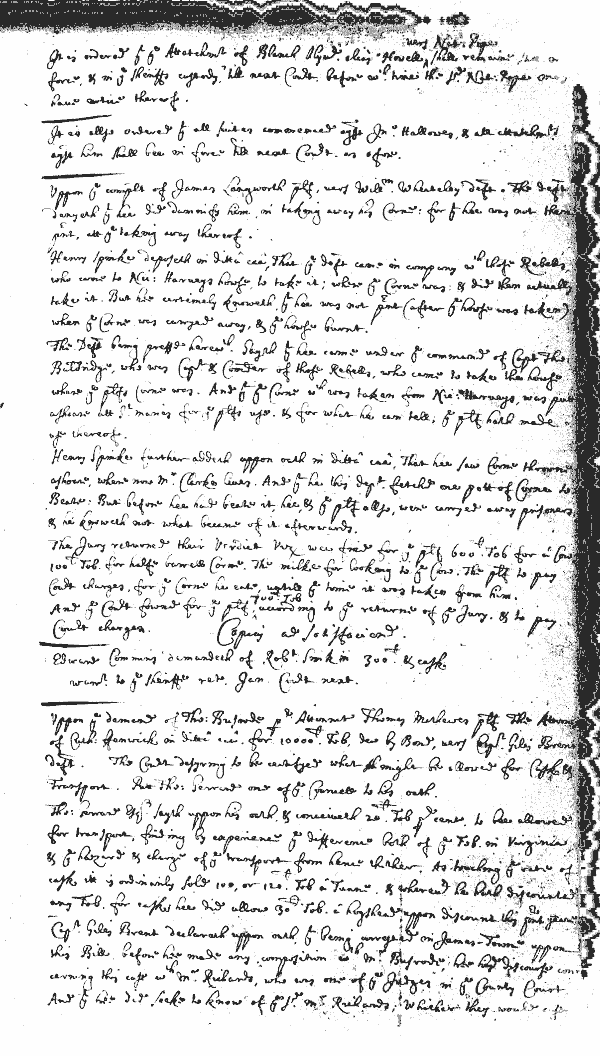 vers Nic: Rope
It is ordered yt ye Attachmt of Blanch Oliver alias Howell, shall remaine still in
force, & in ye Sheriffs custody, till next Cort. before wch time the sd. Nic: Rope
have notice thereof.
It is allso ordered yt all suites commenced agst Jno Hallowes, & all attachmts
agst him shall bee in force till next Cort. as afore.
Uppon ye complt of James Langworth plf, vers Willm. Wheateley deft. The deft
denyeth yt hee did damnify him, in taking away his Corne: for yt hee was not then
pnt, att ye taking away thereof.
Henry Spinke deposeth in ditta caã, That ye deft came in company wth those Rebells,
who came to Nic: Harveys howse, to take it, where ye Corne was: & did then actually
take it. But hee certainely knoweth yt hee was not pnt (after ye howse was taken)
when ye Corne was carryed away, & ye howse burnt.
The Deft being pressed herewth. Sayth yt hee came under ye command of Capt Tho:
Baldridge, who was Capt & Comder of those Rebells, who came to take the howse
where ye plfs Corne was. And yt ye Corne wch was taken from Nic: Harveys, was put
ashoare att St. maries for ye plfs use. & for what hee can tell, ye plf hath made
use thereof.
Henry Spinke further addeth uppon oath in ditta caã, That hee saw Corne throwne
ashoare, where now Mr. Clarke lives. And yt hee this dept. fetched one part of Corne to
Beate: But before hee had beate it, hee & ye plf allso, were carryed away prisoners
& hee knoweth not what became of it afterwards.
The Jury returned their Verdict Viz. wee find for ye plf 600l Tob for a Cow
100l Tob. for halfe barrell Corne. The milke for looking to ye Cow. The plf to pay
Cort charges, for ye Corne hee eate, untill ye time it was taken from him.
700l Tob
And ye Cort found for ye plf according to ye returne of ye Jury, & to pay
Court charges. Capias ad satisfaciend.
Edward Commins demandeth of Robt Smith 300l & cask.
warrt. to ye Sheriffe retr. Jan. Cort next.
Uppon ye demand of Tho: Bushrode pr Atturney Thomas Mathewes plf. The Atturney
of Cuth: Fenwick, in ditta caã. for 10000l. Tob, due by Bond, vers Capt. Giles Brent
deft. The Cort desyring to be certifyed what might be allowed for Caske &
Transport. Put Tho: Gerrard one of ye Councell to his oath.
Tho: Gerrard Esqr sayth uppon his oath, & conceiveth 20l Tob p cent. to bee allowed
for transport, finding by experience ye difference both of ye Tob. in Virginia
& ye hazard & charge of ye transport from hence thither. As touching ye rate of
cask it is ordinarily sold 100, or 120l. Tob a Tunne, & whereas he hath discounted
any Tob. for caske hee did allow 30l Tob. a hogshead uppon discount this pnt yeare
Capt. Giles Brent declareth uppon oath, yt being arrested in James-Towne uppon
this Bill, before hee made any composition wth mr. Bushrode, hee had discourse con=
cerning this case wth mr. Richards, who was one of ye Judges in ye County Court
And yt hee did seeke to know of ye sd. mr. Richards, whether they would